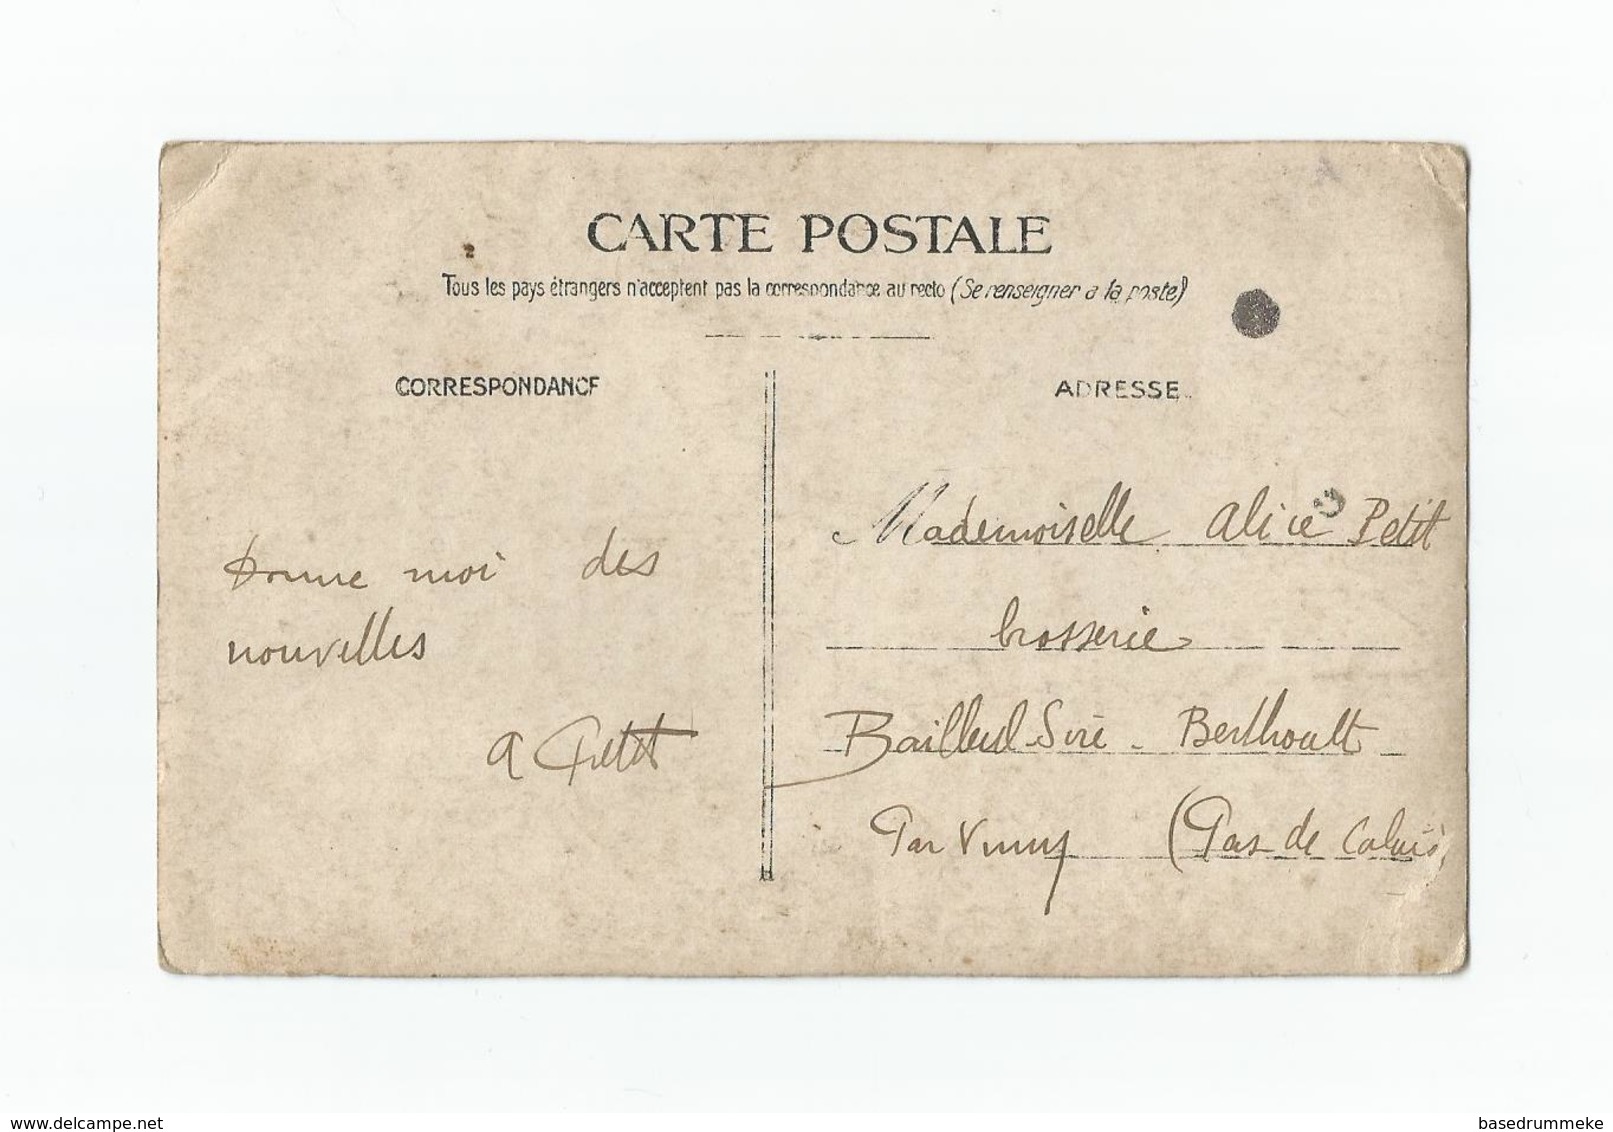 CARTE POSTALE
Tous les pays étrangers n'acceptent pas la correspondance au recto (Se renseigner a la poste)
CORRESPONDANCE
Donne moi des
nouvelles
A Petit
ADRESSE
Mademoiselle alice Petit
brosserie
Bailleul-Sire-Berthoult
Par Vimy (Pas de Calais)
delcampe.net
basedrummeke